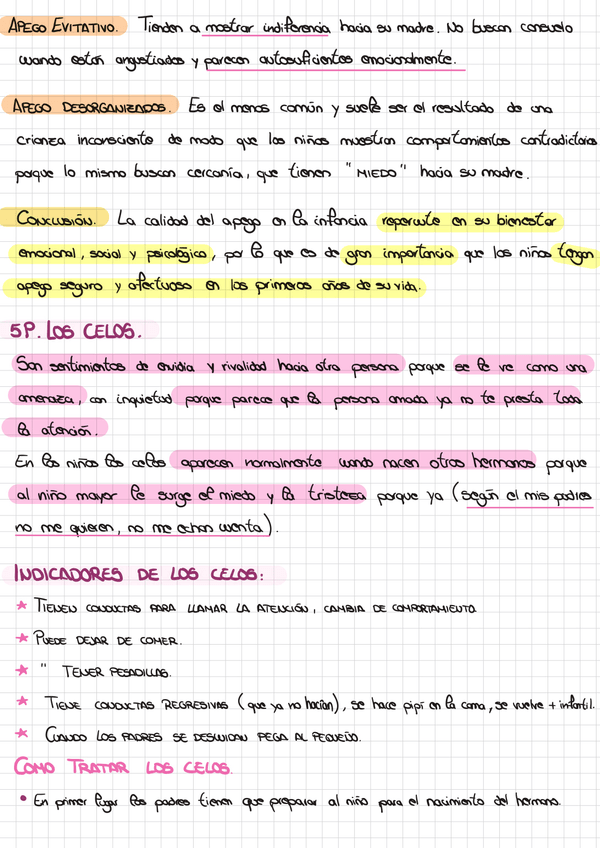 APEGO EVITATIVO. Tienden a mostrar indiferencia hacia su madre. No buscan consuelo
cuando están angustiados y parecen autosuficientes emocionalmente.
APEGO DESORGANIZADOS. Es el menos común y suele ser el resultado de una
crianza inconsciente de modo que los niños muestran comportamientos contradictorios
porque lo mismo buscan cercanía, que tienen "MIEDO" hacia su madre.
CONCLUSIÓN. La calidad del apego en la infancia repercute en su bienestar
emocional, social y psicológico, por lo que es de gran importancia que los niños tengan
apego seguro y afectuoso en los primeros años de su vida.
5P. LOS CELOS.
Son sentimientos de envidia y rivalidad hacia otra persona porque se le ve como una
amenaza, con inquietud porque parece que la persona amada ya no te presta toda
la atención.
En los niños los celos aparecen normalmente cuando nacen otros hermanos porque
al niño mayor le surge el miedo y la tristeza porque ya (según el mis padres
no me quieren, no me echan cuenta).
INDICADORES DE LOS CELOS:
★ TIENEN CONDUCTAS PARA LLAMAR LA ATENCIÓN, CAMBIA DE COMPORTAMIENTO.
★ PUEDE DEJAR DE COMER.
★ " TENER PESADILLAS.
★ TIENE CONDUCTAS REGRESIVAS (que ya no hacían), se hace pipí en la cama, se vuelve + infantil.
★ CUANDO LOS PADRES SE DESCUIDAN PEGA AL PEQUEÑO.
COMO TRATAR LOS CELOS.
• En primer lugar los padres tienen que preparar al niño para el nacimiento del hermano.